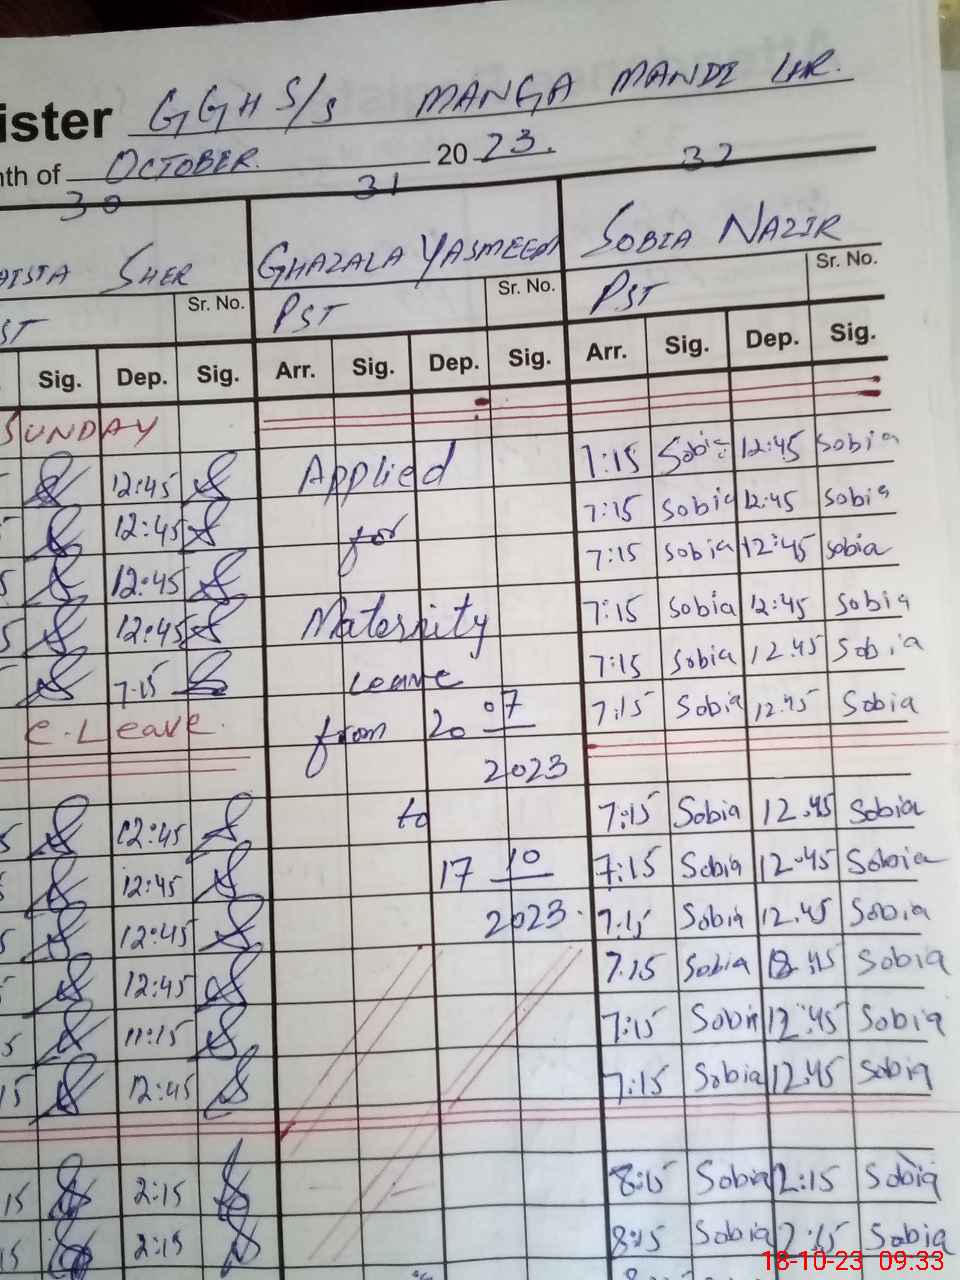 ister GGHS/S MANGA MANDI LHR.
nth of OCTOBER. 2023.
30 31 32
SHER GHAZALA YASMEEN SOBIA NAZIR
ST Sr. No. PST Sr. No. PST Sr. No.
Sig. Dep. Sig. Arr. Sig. Dep. Sig. Arr. Sig. Dep. Sig.
SUNDAY
12:45 Applied 7:15 Sobia 12:45 Sobia
12:45 for 7:15 Sobia 12:45 Sobia
12:45 7:15 Sobia 12:45 Sobia
12:45 Maternity 7:15 Sobia 12:45 Sobia
7:15 Leave 7:15 Sobia 12:45 Sobia
C. Leave. from 20 07 7:15 Sobia 12:45 Sobia
2023
12:45 to 7:15 Sobia 12:45 Sobia
12:45 17 10 7:15 Sobia 12:45 Sobia
12:45 2023. 7:15 Sobia 12:45 Sobia
12:45 7:15 Sobia 12:45 Sobia
11:15 7:15 Sobia 12:45 Sobia
15 12:45 7:15 Sobia 12:45 Sobia
15 2:15 8:15 Sobia 2:15 Sobia
15 2:15 8:15 Sobia 2:15 Sobia
18-10-23 09:33